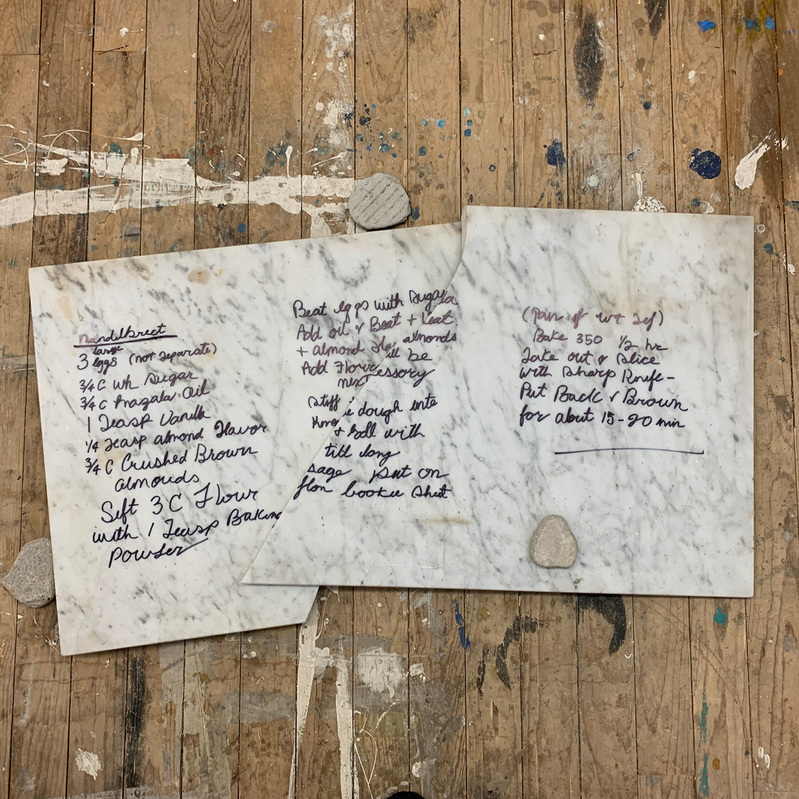 mandelbreet
3 large eggs (not separate)
3/4 C wh sugar
3/4 C mazala Oil
1 Teasp Vanilla
1/4 Teasp almond Flavor
3/4 C Crushed Brown
almonds
Sift 3 C Flour
with 1 Teasp Baking
Powder
Beat eggs with sugar
Add oil & Beat + Beat
+ almond almonds
Add Flour
ill be
necessory
stiff
dough into
& Roll with
till long
sage put on
flon cookie sheet
Bake 350 1/2 hr
Take out & slice
with sharp Knife -
Put Back & Brown
for about 15-20 min